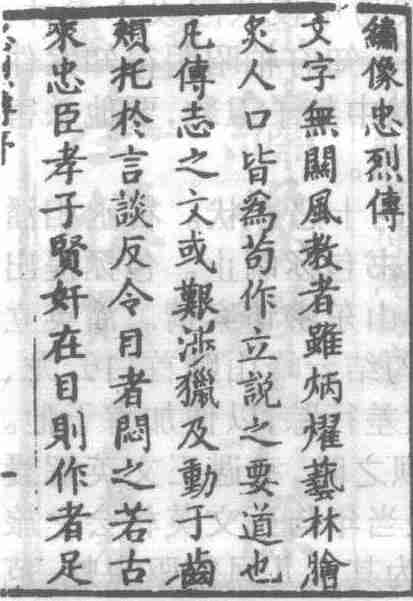 繡像忠烈傳
文字無關風教者雖炳燿藝林膾
炙人口皆爲苟作立說之要道也
凡傳志之文或艱涉獵及動于齒
頰托於言談反令目者悶之若古
來忠臣孝子賢奸在目則作者足